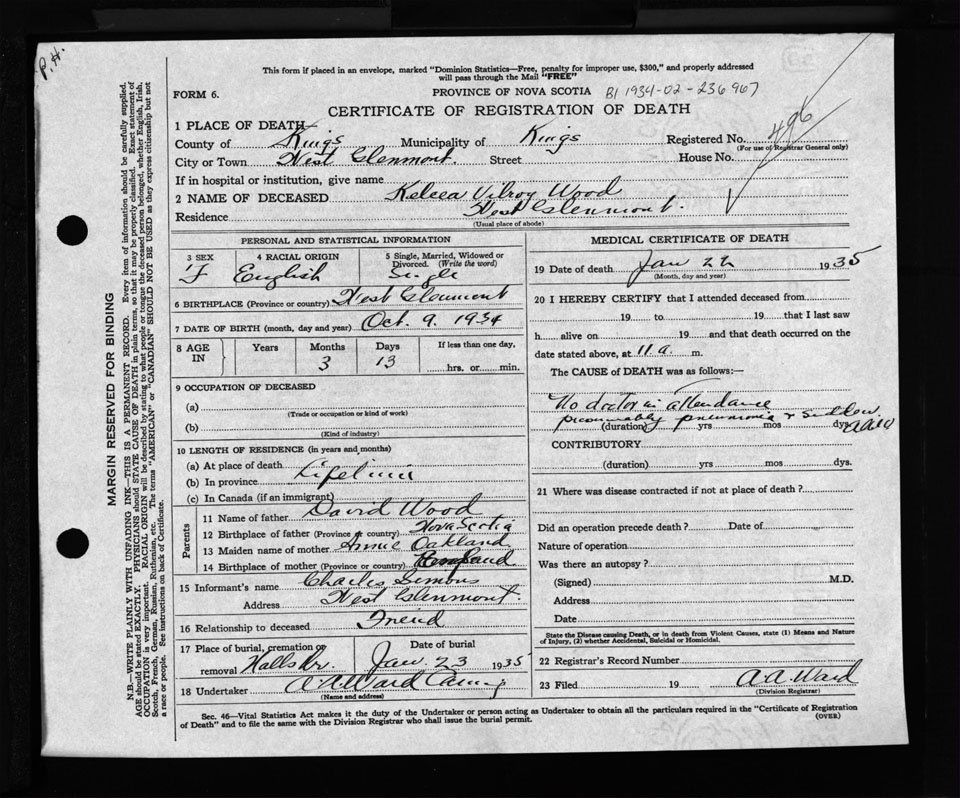 P.H.
This form if placed in an envelope, marked "Dominion Statistics—Free, penalty for improper use, $300," and properly addressed
will pass through the Mail "FREE"
FORM 6.
PROVINCE OF NOVA SCOTIA B1 1934-02-236967
CERTIFICATE OF REGISTRATION OF DEATH
1 PLACE OF DEATH—
County of Kings Municipality of Kings Registered No. 496
(For use of Registrar General only)
City or Town West Glenmont. Street House No.
If in hospital or institution, give name
2 NAME OF DECEASED Wood
Residence West Glenmont.
(Usual place of abode)
PERSONAL AND STATISTICAL INFORMATION
3 SEX 4 RACIAL ORIGIN 5 Single, Married, Widowed or Divorced. (Write the word)
F English Single
6 BIRTHPLACE (Province or country) West Glenmont
7 DATE OF BIRTH (month, day and year) Oct. 9. 1934
8 AGE IN Years Months Days If less than one day,
3 13 hrs. or min.
9 OCCUPATION OF DECEASED
(a)
(Trade or occupation or kind of work)
(b)
(Kind of industry)
10 LENGTH OF RESIDENCE (in years and months)
(a) At place of death
(b) In province Lifetime
(c) In Canada (if an immigrant)
Parents
11 Name of father David Wood
12 Birthplace of father (Province or country) Nova Scotia
13 Maiden name of mother Annie Oakland
14 Birthplace of mother (Province or country) England
15 Informant's name Charles
Address West Glenmont.
16 Relationship to deceased Freind
17 Place of burial, cremation or removal Halls Hr. Date of burial Jan 23 1935
18 Undertaker Ward
(Name and address)
MEDICAL CERTIFICATE OF DEATH
19 Date of death Jan 22 1935
(Month, day and year)
20 I HEREBY CERTIFY that I attended deceased from
19 to 19 that I last saw
h alive on 19 and that death occurred on the
date stated above, at 11 a. m.
The CAUSE of DEATH was as follows:—
No doctor in attendance
presumably pneumonia & sudden
(duration) yrs mos dys.
CONTRIBUTORY
(duration) yrs mos dys.
21 Where was disease contracted if not at place of death?
Did an operation precede death? Date of
Nature of operation
Was there an autopsy?
(Signed) M.D.
Address
Date
State the Disease causing Death, or in death from Violent Causes, state (1) Means and Nature
of Injury, (2) whether Accidental, Suicidal or Homicidal.
22 Registrar's Record Number
23 Filed 19 A.A. Ward
(Division Registrar)
Sec. 46—Vital Statistics Act makes it the duty of the Undertaker or person acting as Undertaker to obtain all the particulars required in the "Certificate of Registration
of Death" and to file the same with the Division Registrar who shall issue the burial permit.
(OVER)
MARGIN RESERVED FOR BINDING
N.B.—WRITE PLAINLY WITH UNFADING INK—THIS IS A PERMANENT RECORD. Every item of information should be carefully supplied.
AGE should be stated EXACTLY. PHYSICIANS should STATE CAUSE OF DEATH in plain terms, so that it may be properly classified. Exact statement of
OCCUPATION is very important. RACIAL ORIGIN will be described by stating to what people or tongue the deceased person belonged, whether English, Irish,
Scotch, French, German, Russian, Ruthenian, etc. The terms "AMERICAN" or "CANADIAN" SHOULD NOT BE USED as they express citizenship but not
a race or people. See instructions on back of Certificate.